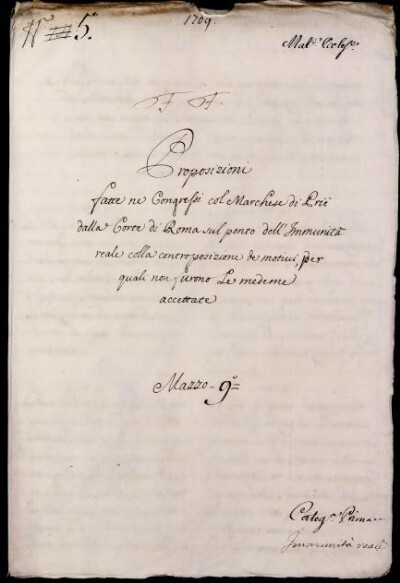 1709.
N.° 5.°
Mat.ᵉ Eccles.ᶜʰᵉ
F F.
Proposizioni
fatte ne Congressi col Marchese di Prié
dalla Corte di Roma sul ponto dell'Immunità
reale colla controposizione de motivi, per
quali non furono le medeme
accettate
Mazzo - 9.°
Categ.ᵃ Prima
Immunità reale